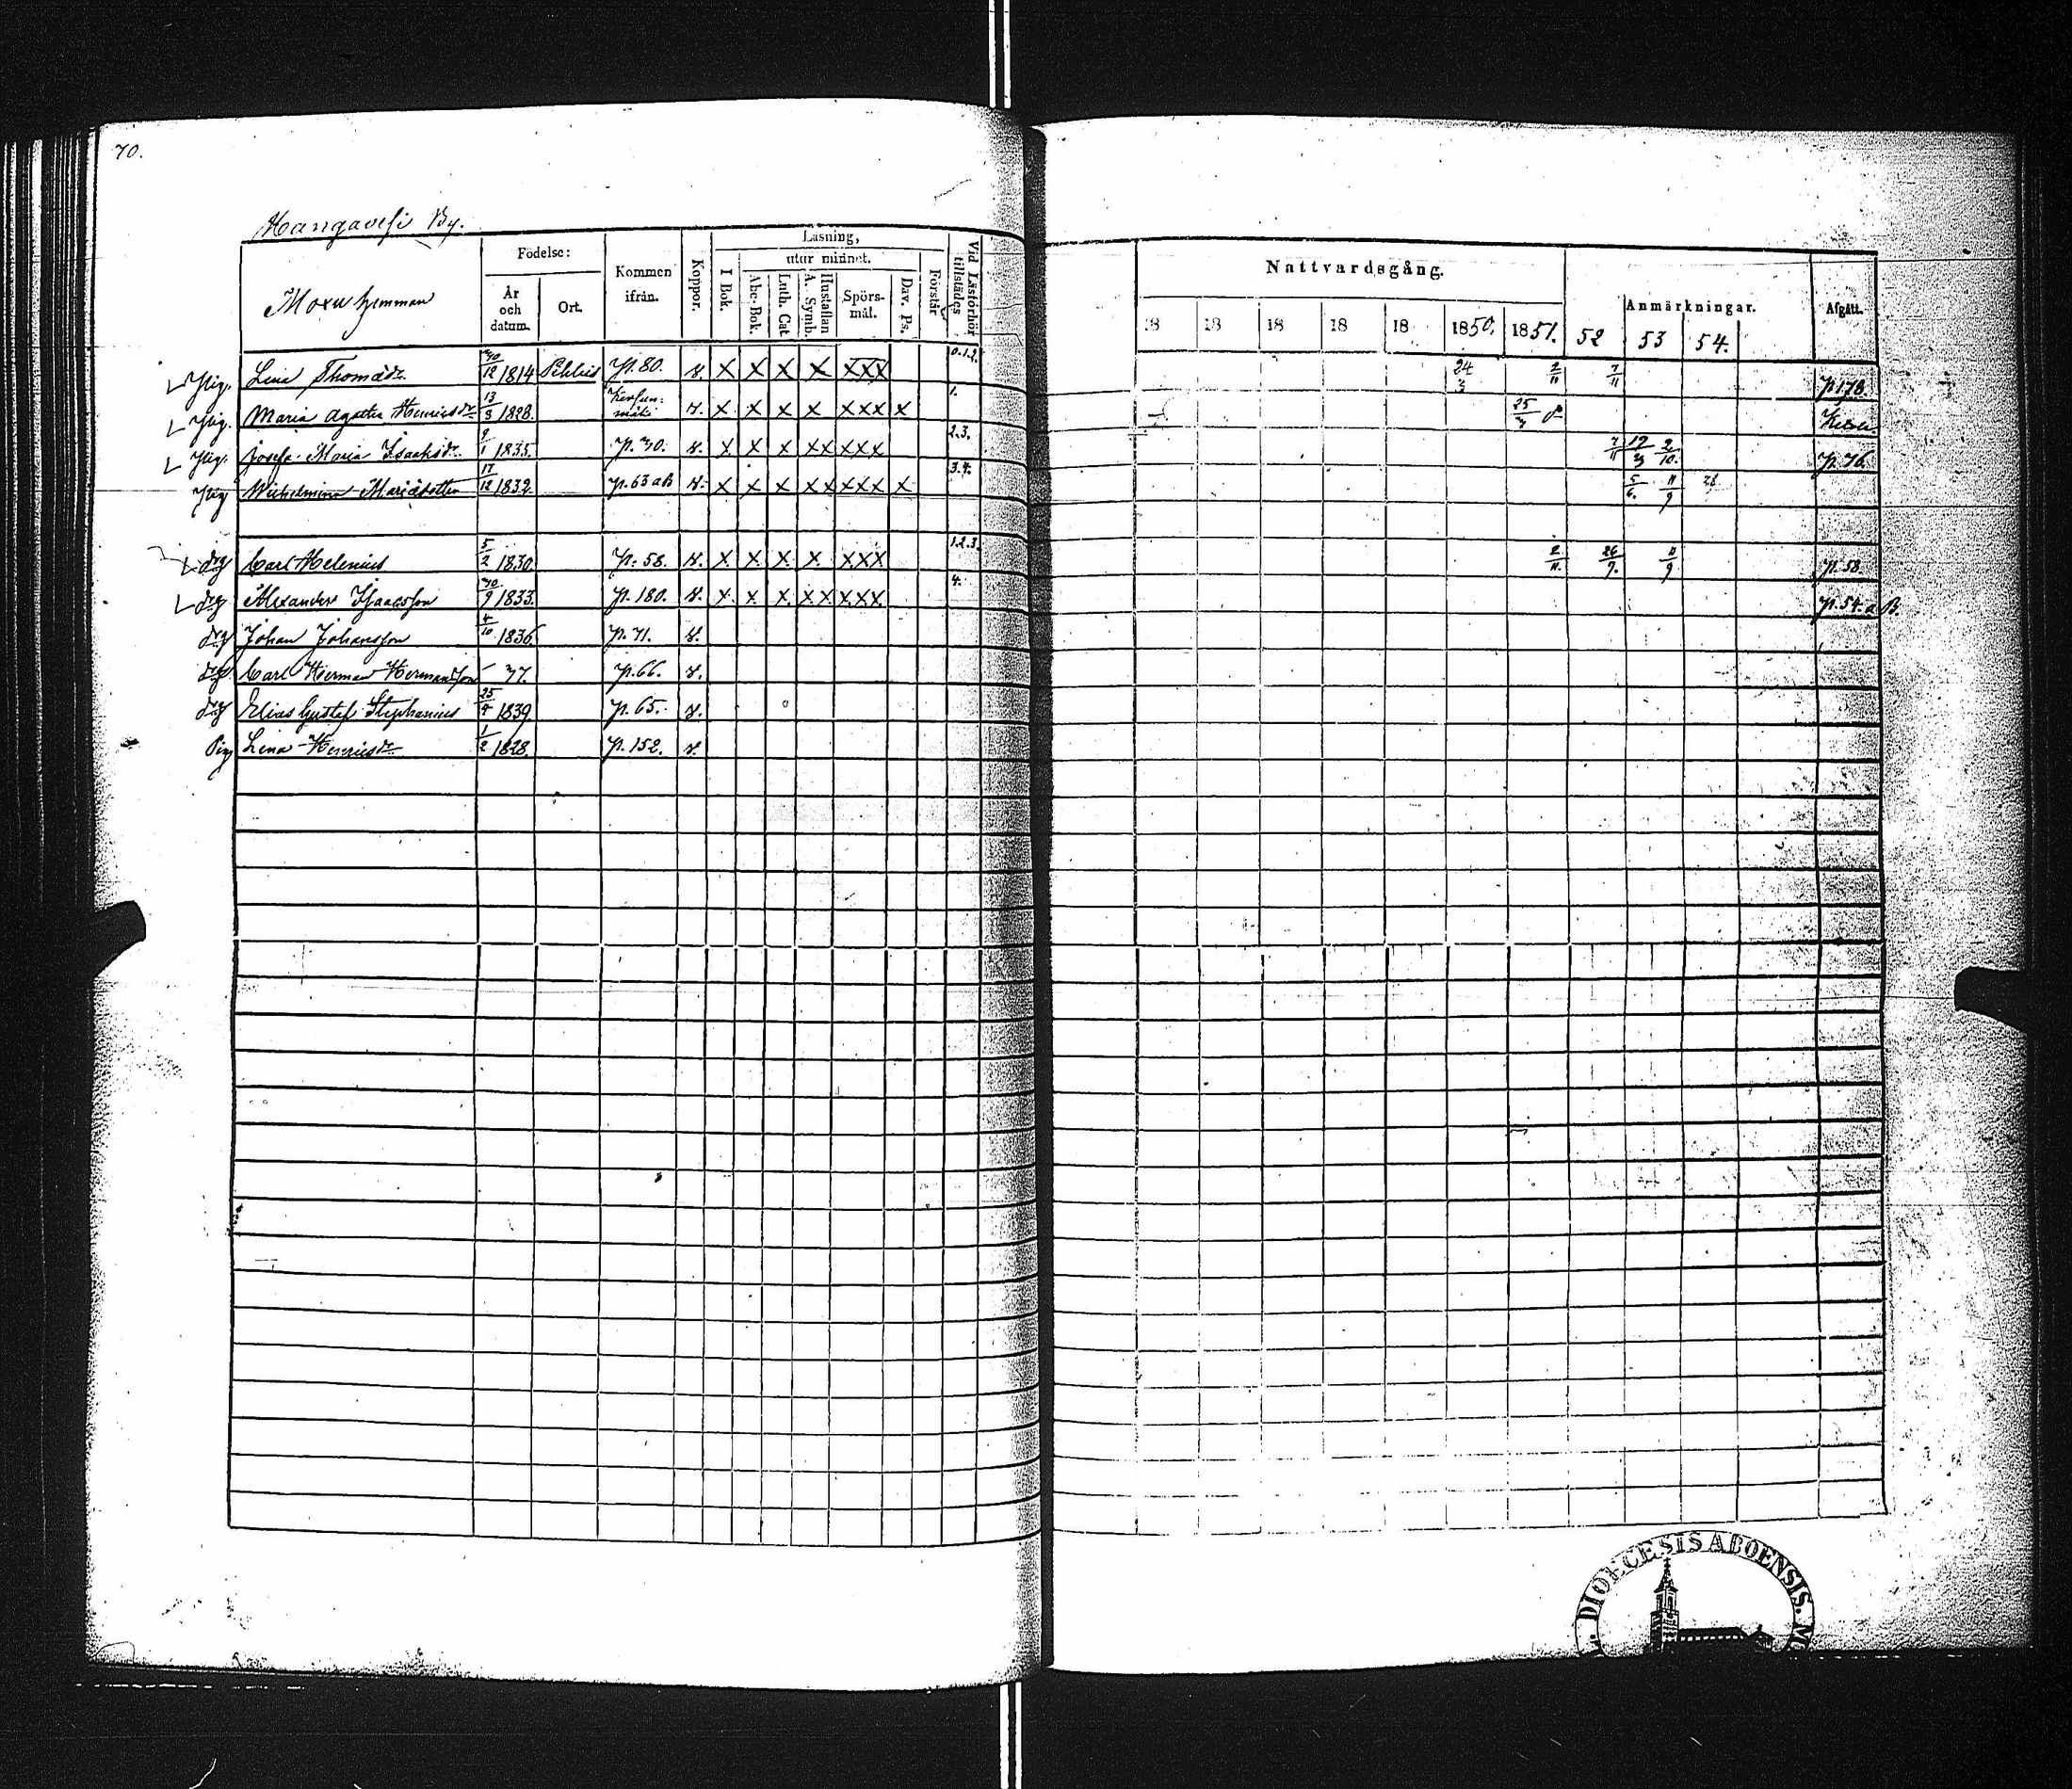 70.
By.
Moxu hemman
Födelse:
År och datum.
Ort.
Kommen ifrån.
Koppor.
Läsning,
utur minnet.
I Bok.
Abc-Bok.
Luth. Cat.
Hustaflan A. Symb.
Spörs-mål.
Dav. Ps.
Förstår
Vid Läsförhör tillstädes
Nattvardsgång.
18 18 18 18 18 1850. 1851. 52 53 54.
Anmärkningar.
Afgått.
Lina Thomasdr. 30/12 1814 p. 80. v. X X X X XXX 0.1.2. 24/3 2/11 7/11 p. 178
Maria Agatha Henricsdr. 13/3 1828. v. X X X X XXX X 1. 25/3
Josefa Maria Isaksdr. 9/1 1835. p. 30. v. X X X XX XXX 2.3. 7/11 2/10. p. 76
Wilhelmina Mariædotter 17/12 1832. p. 63 a B v. X X X XX XXX X 3.4. 5/6. 11/9
drg Carl Helenius 5/2 1830. p. 58. v. X X X X XXX 1.2.3. 2/11. 26/9. 11/9 p. 58.
drg Alexander Isaacsson 30/9 1833. p. 180. v. X X X XX XXX 4. p. 54. a B
drg Johan Johansson 4/10 1836 p. 71. v.
drg Carl Herman Hermansson – 37. p. 66. v.
drg Elias Gustaf Stephanius 25/4 1839 p. 65. v.
Pig Lena Henricsdr. 1/2 1828. p. 152. v.
DIOECESIS ABOENSIS.